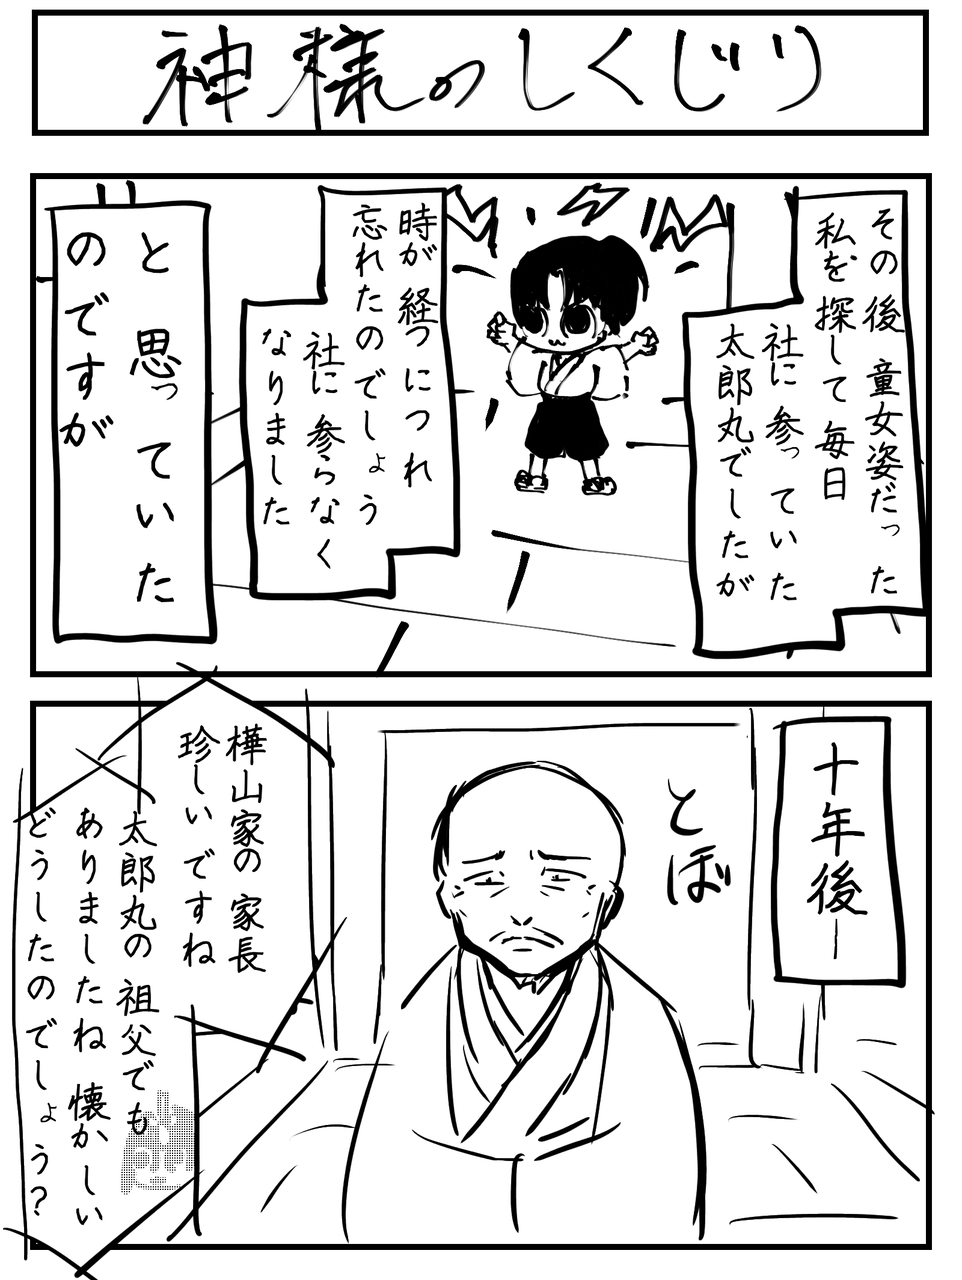 神様のしくじり
その後童女姿だった
私を探して毎日
社に参っていた
太郎丸でしたが
時が経つにつれ
忘れたのでしょう
社に参らなく
なりました
と思っていた
のですが
十年後ー
とぼ
樺山家の家長
珍しいですね
太郎丸の祖父でも
ありましたね懐かしい
どうしたのでしょう?